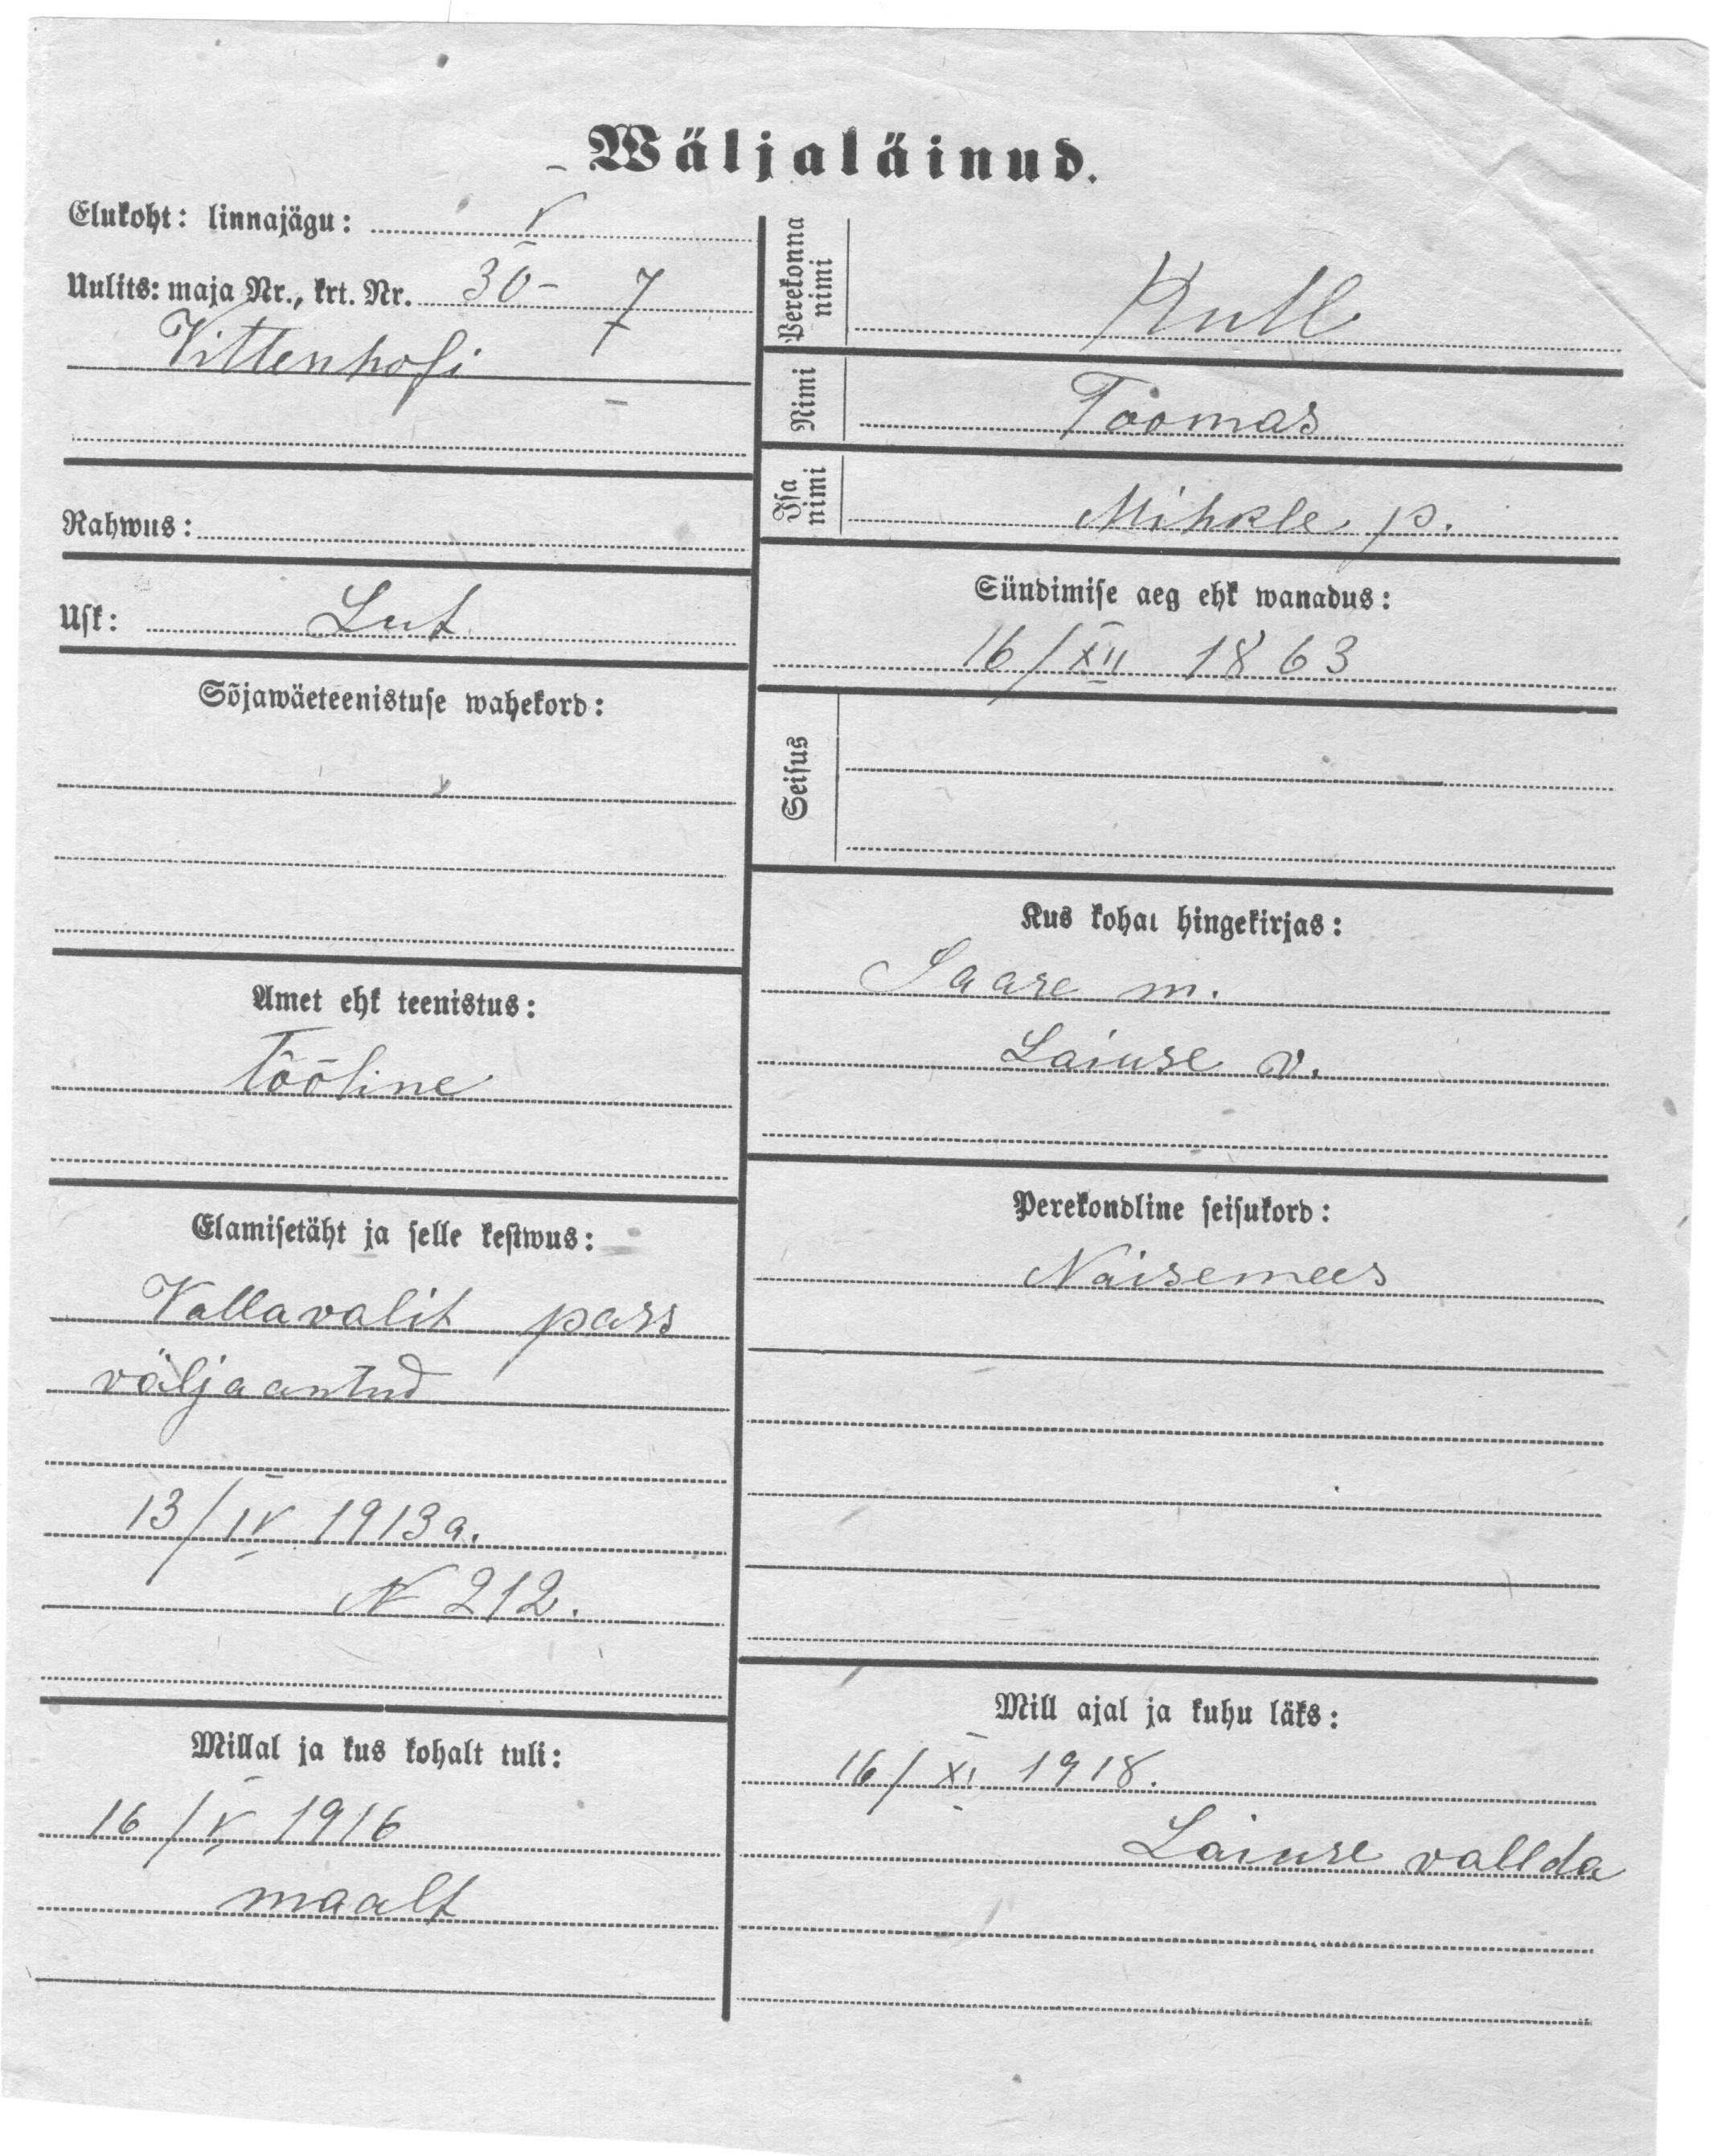 Wäljaläinud.
Elukoht: linnajägu: V
Uulits: maja Nr., krt. Nr. 30 - 7
Vittenhofi
Rahwus:
Usk: Lut
Sõjawäeteenistuse wahekord:
Amet ehk teenistus:
Tööline
Elamisetäht ja selle kestwus:
Vallavalit pass
väljaantud
13/IV 1913 a.
N 212.
Millal ja kus kohalt tuli:
16/V 1916
maalt
Perekonna nimi
Kull
Nimi
Toomas
Isa nimi
Mihkle p.
Sündimise aeg ehk wanadus:
16/XII 1863
Seisus
Kus kohal hingekirjas:
Saare m.
Laiuse v.
Perekondline seisukord:
Naisemees
Mill ajal ja kuhu läks:
16/XI 1918.
Laiuse vallda